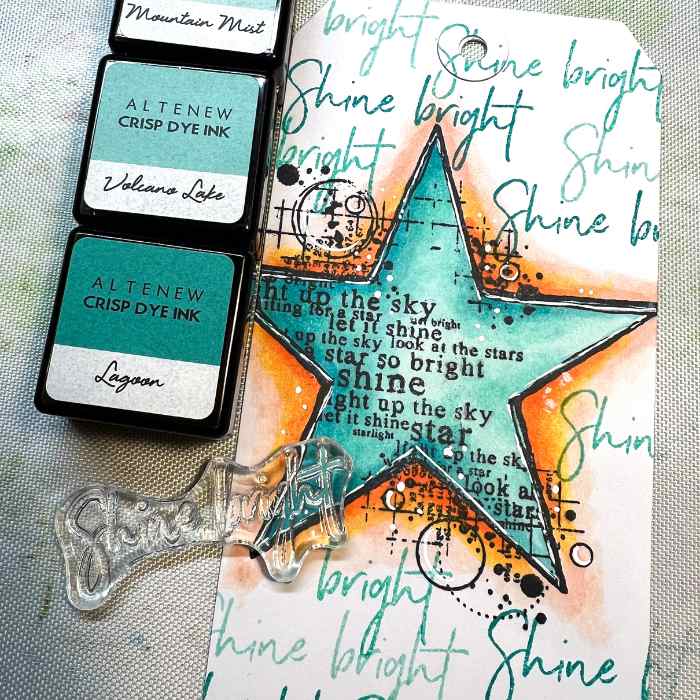 Mountain Mist
ALTENEW
CRISP DYE INK
Volcano Lake
ALTENEW
CRISP DYE INK
Lagoon
Shine bright
bright
Shine bright
Shine bright
bright
Shin
Shine b
bright
ht up the sky
iting for a star
let it shine
up the sky look at the stars
star so bright
shine
ght up the sky
let it shine
starlight
star
up the sk
look a
star
shine
Shin
bright
Shine bright
Shine
bright